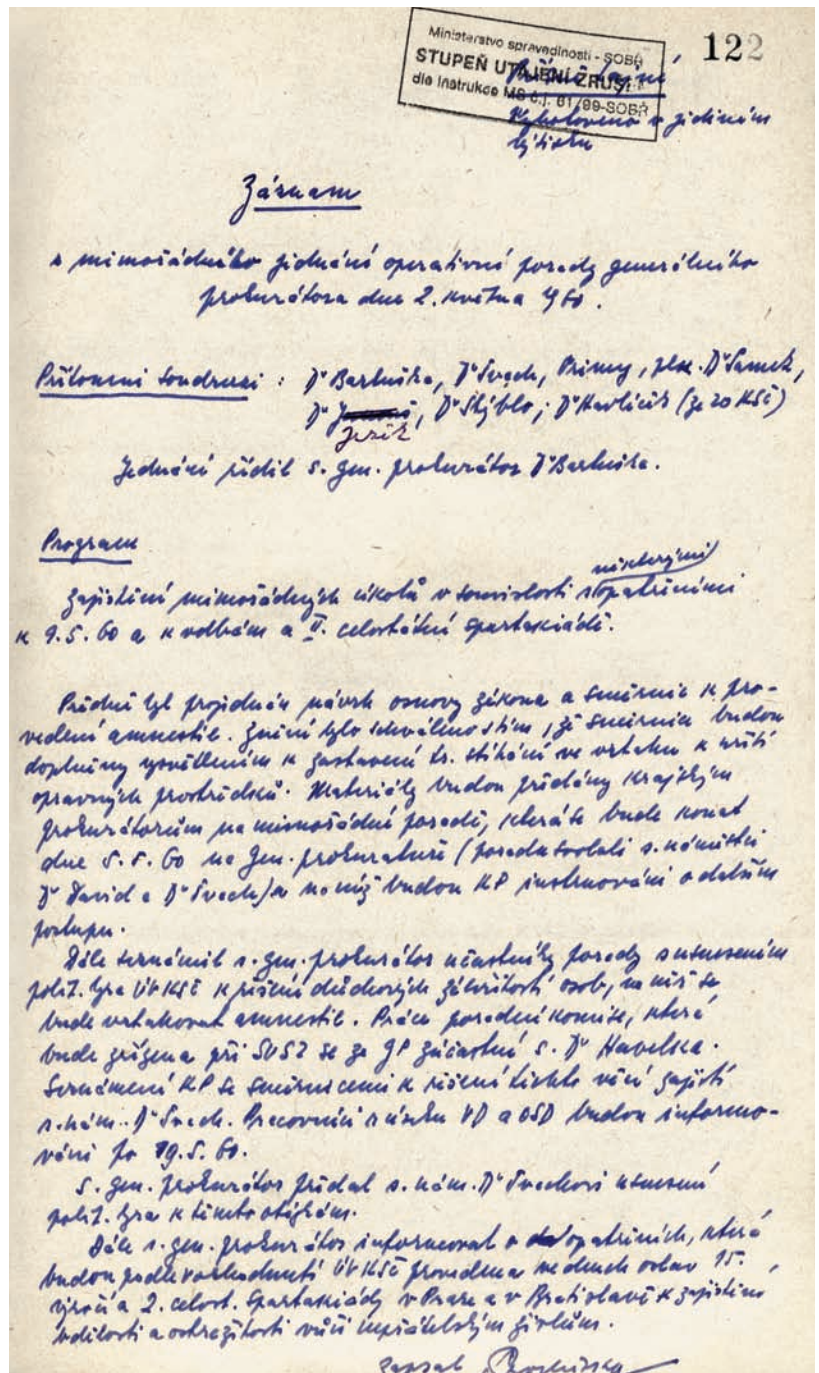 122
Ministerstvo spravedlnosti - SOBŘ
STUPEŇ UTAJENÍ ZRUŠEN
dle Instrukce MS č.j. 61/99-SOBŘ
Přísně tajné
Vyhotoveno v jediném
výtisku
Záznam
z mimořádného jednání operativní porady generálního
prokurátora dne 2. května 1960.
Přítomni soudruzi: Dr Bartuška, Dr Švach, Primy, plk. Dr Samek,
Dr Ježek, Dr Stýblo, Dr Havlíček (ze ZO KSČ)
Jednání řídil s. gen. prokurátor Dr Bartuška.
Program
některými
Zajištění mimořádných úkolů v souvislosti s opatřeními
k 9.5.60 a k volbám a II. celostátní spartakiádě.
Předně byl projednán návrh osnovy zákona a směrnic k pro-
vedení amnestie. Znění bylo schváleno s tím, že směrnice budou
doplněny vysvětlením k zastavení tr. stíhání ve vztahu k užití
opravných prostředků. Materiály budou předány krajským
prokurátorům na mimořádné poradě, která se bude konat
dne 5.5.60 na Gen. prokuratuře (poradu svolali s. náměstci
Dr David a Dr Švach) a na níž budou KP instruováni o dalším
postupu.
Dále seznámil s. gen. prokurátor účastníky porady s usnesením
polit. byra ÚV KSČ k řešení důchodových záležitostí osob, na něž se
bude vztahovat amnestie. Práce poradní komise, která
bude zřízena při SÚSZ se za GP zúčastní s. Dr Havelka.
Seznámení KP se směrnicemi k řešení těchto věcí zajistí
s. nám. Dr Švach. Pracovníci z úseku VD a OSD budou informo-
váni po 9.5.60.
S. gen. prokurátor předal s. nám. Dr Švachovi usnesení
polit. byra k těmto otázkám.
Dále s. gen. prokurátor informoval o opatřeních, která
budou podle rozhodnutí ÚV KSČ provedena ve dnech oslav 15.
výročí a 2. celost. spartakiády v Praze a v Bratislavě k zajištění
bdělosti a ostražitosti vůči nepřátelským živlům.
Zapsal